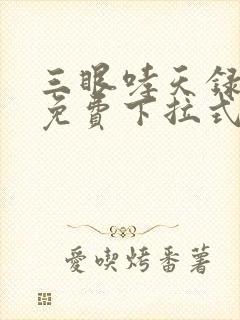 三眼哇天録
免費下拉式
愛喫烤番薯